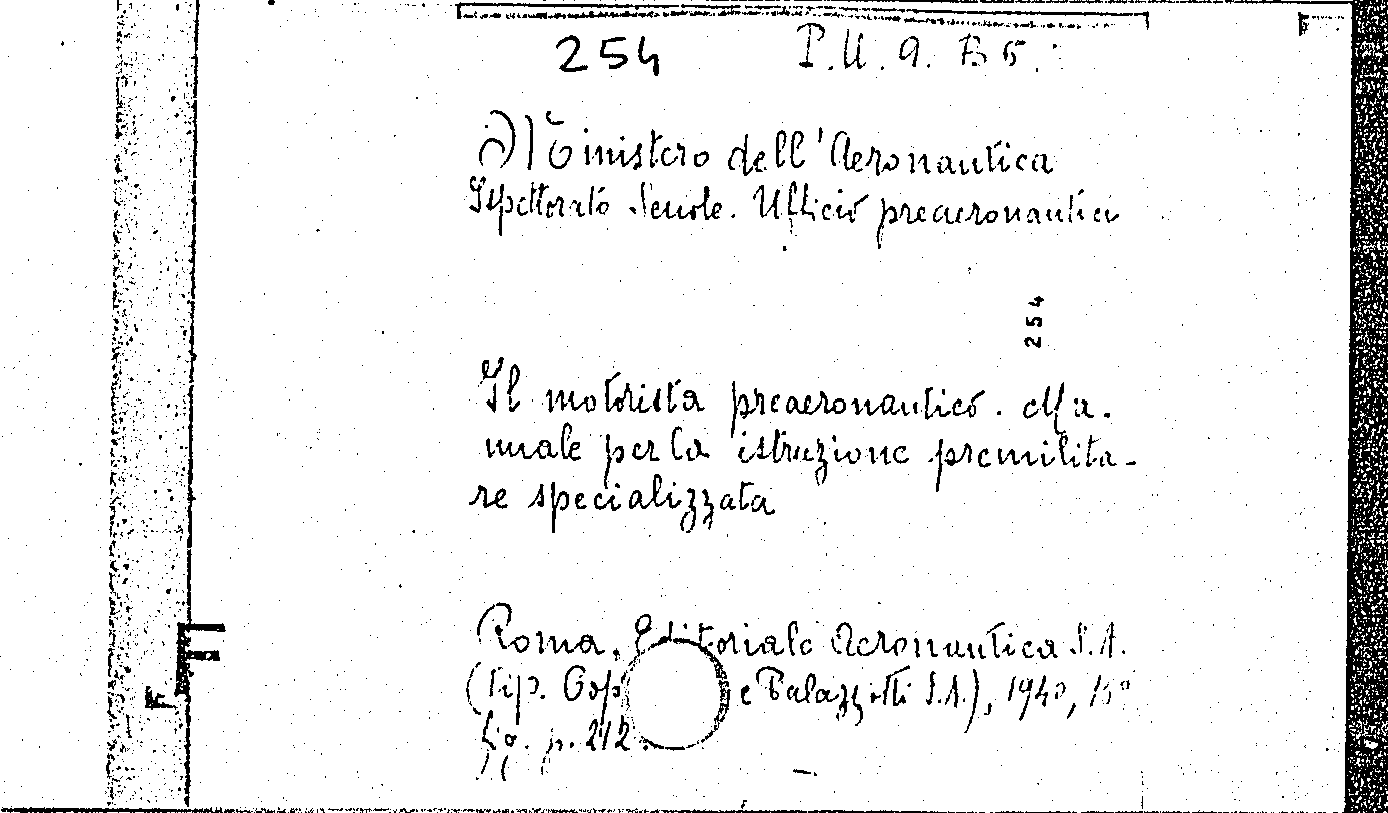 254 P.U.9.B6.
Ministero dell'Aeronautica
Ispettorato Scuole. Ufficio preaeronautica
254
Il motorista preaeronautico. Ma-
nuale per la istruzione premilita-
re specializzata
Roma, Editoriale Aeronautica S.A.
(Tip. e Palazzotti S.A.), 1940, 
fig. p. 212